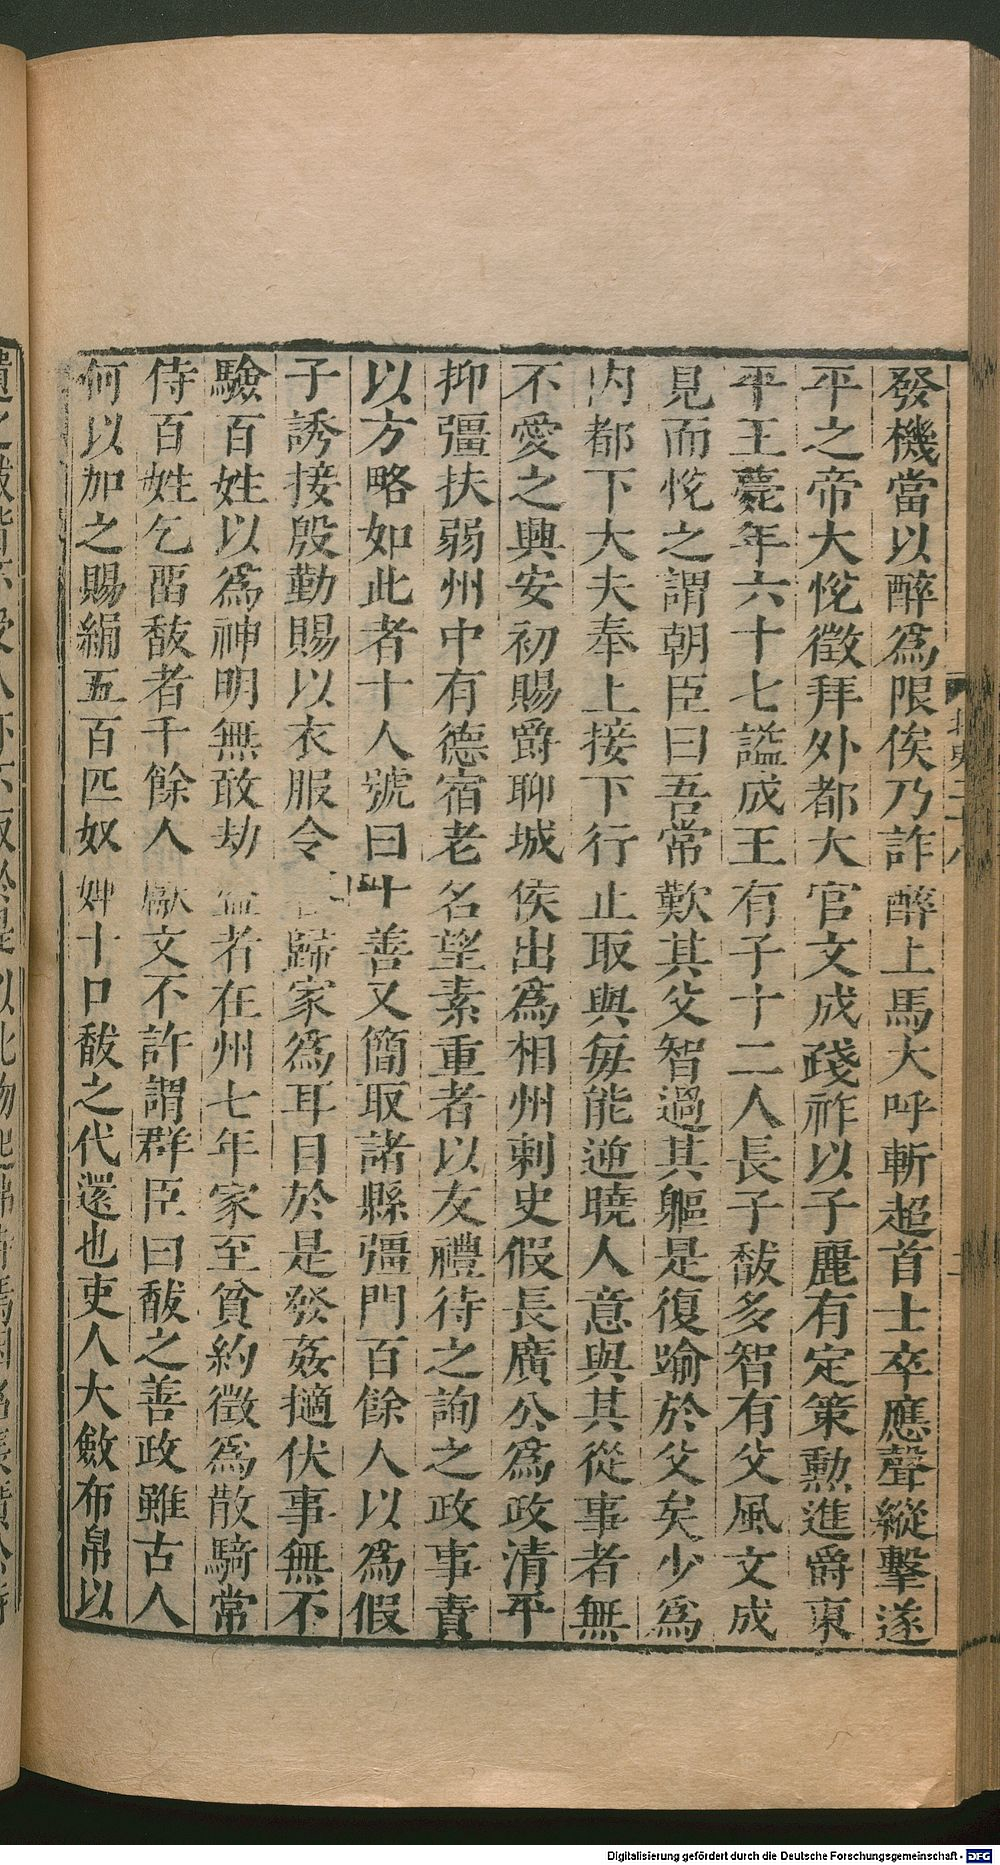 發機當以醉爲限俟乃詐醉上馬大呼斬超首士卒應聲縱擊遂
平之帝大悅徵拜外都大官文成踐祚以子麗有定策勳進爵東
平王薨年六十七謚成王有子十二人長子馛多智有父風文成
見而悅之謂朝臣曰吾常歎其父智過其軀是復踰於父矣少爲
内都下大夫奉上接下行止取與每能逆曉人意與其從事者無
不愛之興安初賜爵聊城侯出爲相州刺史假長廣公爲政清平
抑彊扶弱州中有德宿老名望素重者以友禮待之詢之政事責
以方略如此者十人號曰十善又簡取諸縣彊門百餘人以爲假
子誘接殷勤賜以衣服令歸家爲耳目於是發姦擿伏事無不
驗百姓以爲神明無敢劫盜者在州七年家至貧約徵爲散騎常
侍百姓乞畱馛者千餘人獻文不許謂群臣曰馛之善政雖古人
何以加之賜絹五百匹奴婢十口馛之代還也吏人大斂布帛以
Digitalisierung gefördert durch die Deutsche Forschungsgemeinschaft - DFG